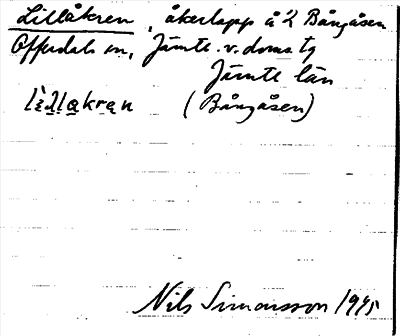 Lillåkren, åkerlapp å 2 Bångåsen
Offerdals sn, Jämtl. v. doms tg
Jämtl. län
(Bångåsen)
Nils Simonsson 1945